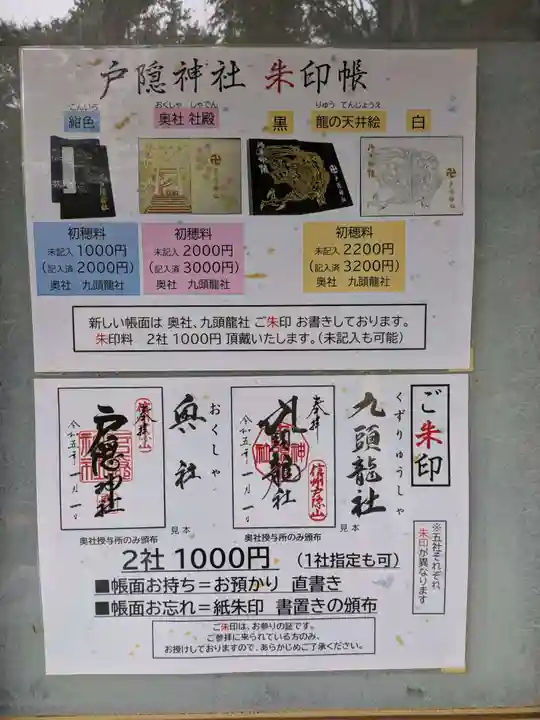 戸隠神社 朱印帳
こんいろ
紺色
おくしゃ しゃでん
奥社 社殿
黒
りゅう てんじょうえ
龍の天井絵
白
初穂料
未記入 1000円
(記入済 2000円)
奥社 九頭龍社
初穂料
未記入 2000円
(記入済 3000円)
奥社 九頭龍社
初穂料
未記入 2200円
(記入済 3200円)
奥社 九頭龍社
新しい帳面は 奥社、九頭龍社 ご朱印 お書きしております。
朱印料 2社 1000円 頂戴いたします。(未記入も可能)
ご朱印
※五社それぞれ
朱印が異なります
くずりゅうしゃ
九頭龍社
奉拝
九頭龍社
信州戸隠山
令和五年一月一日
見本
おくしゃ
奥社
奉拝
信州戸隠山
戸隠神社
令和五年一月一日
見本
奥社授与所のみ頒布
奥社授与所のみ頒布
2社 1000円 (1社指定も可)
■帳面お持ち=お預かり 直書き
■帳面お忘れ=紙朱印 書置きの頒布
ご朱印は、お参りの証です。
ご参拝に来られている方のみ、
お授けしておりますので、あらかじめご了承ください。